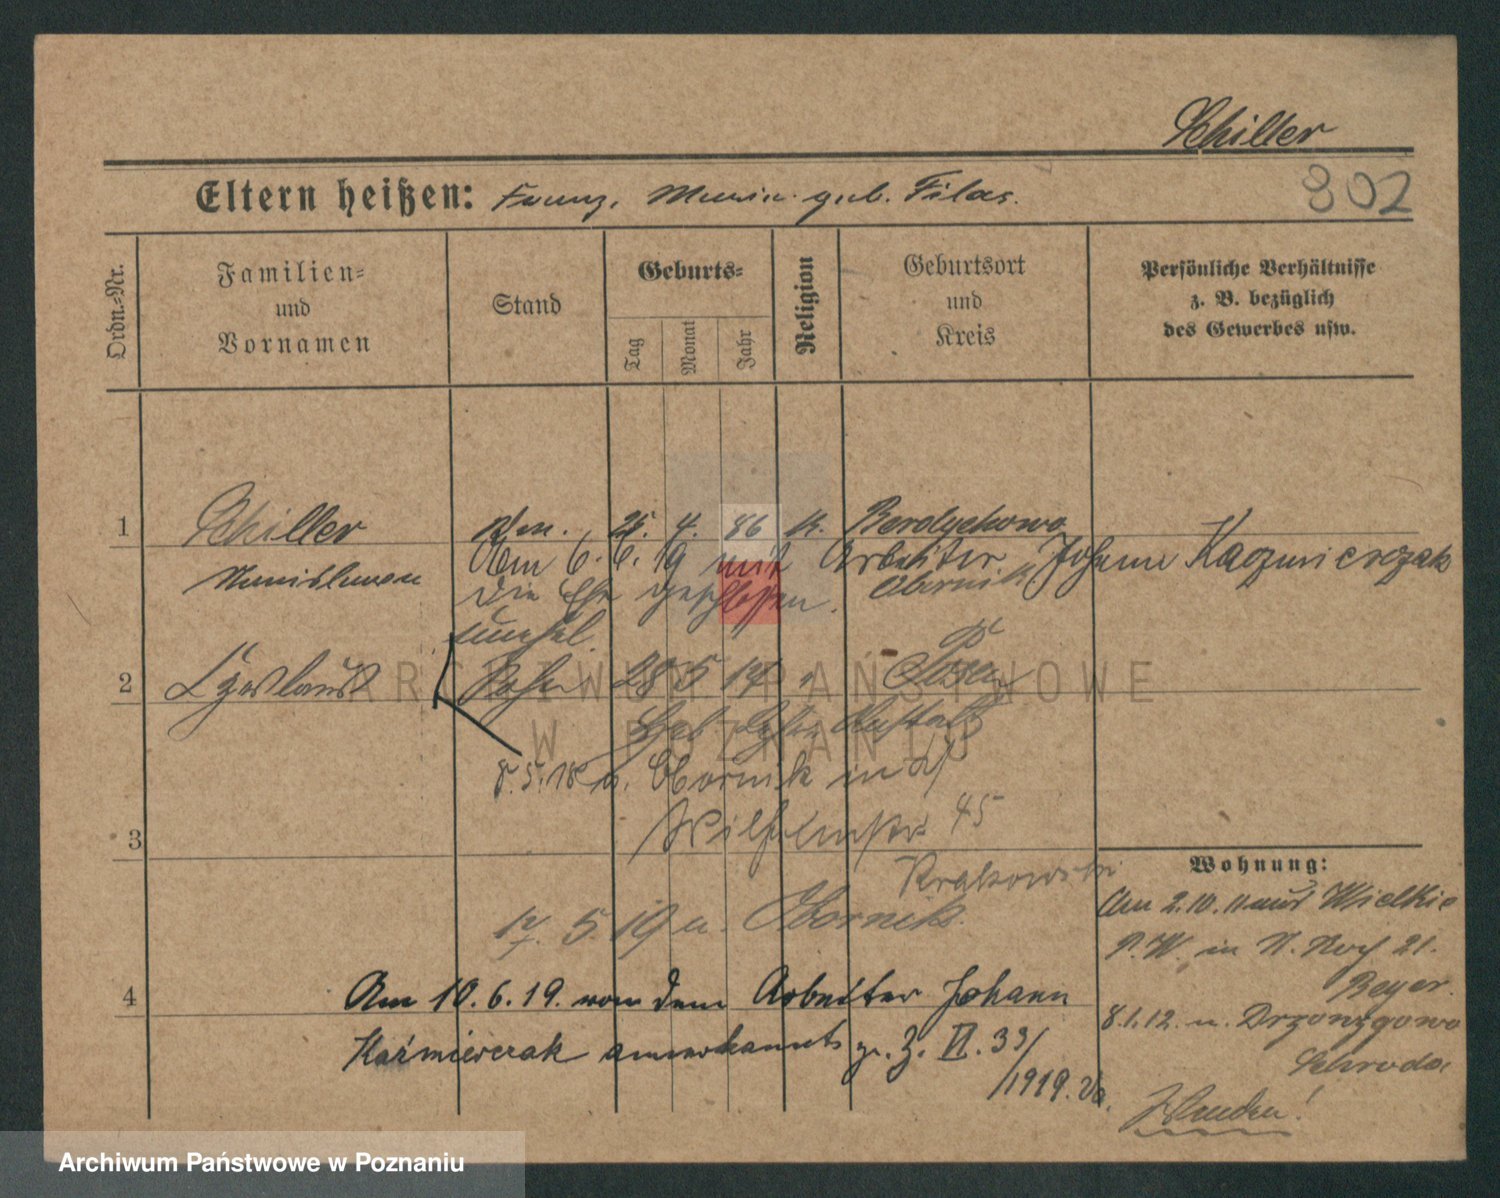 Schiller
Eltern heißen: Franz, Maria geb. Filas.
302
Ordn.-Nr.
Familien-
und
Vornamen
Stand
Geburts-
Tag
Monat
Jahr
Religion
Geburtsort
und
Kreis
Persönliche Verhältnisse
z. B. bezüglich
des Gewerbes usw.
1
Schiller
25. 4. 86 k. Berdychowo
Am 6. 6. 19 mit Arbeiter Johann Kaczmierczak
Stanislawa
Obornik
die Ehe geschlossen.
unehel.
2
Czeslaus
Sohn 28 5 17 Posen
8.5.18 n. Obornik
Wilhelmstr. 45
3
Krakowski
17. 5. 19 n. Obornik.
Wohnung:
Am 2.10.11 aus Wielkie
P.W. in St. Roch 21.
Beyer.
4
Am 10.6.19. von dem Arbeiter Johann
8.1.12. n. Drzonzgowo
Kaźmierczak anerkannt gr. Z. VI. 33/
/1919.
Schroda
Wenden!
ARCHIWUM PAŃSTWOWE
W POZNANIU
Archiwum Państwowe w Poznaniu